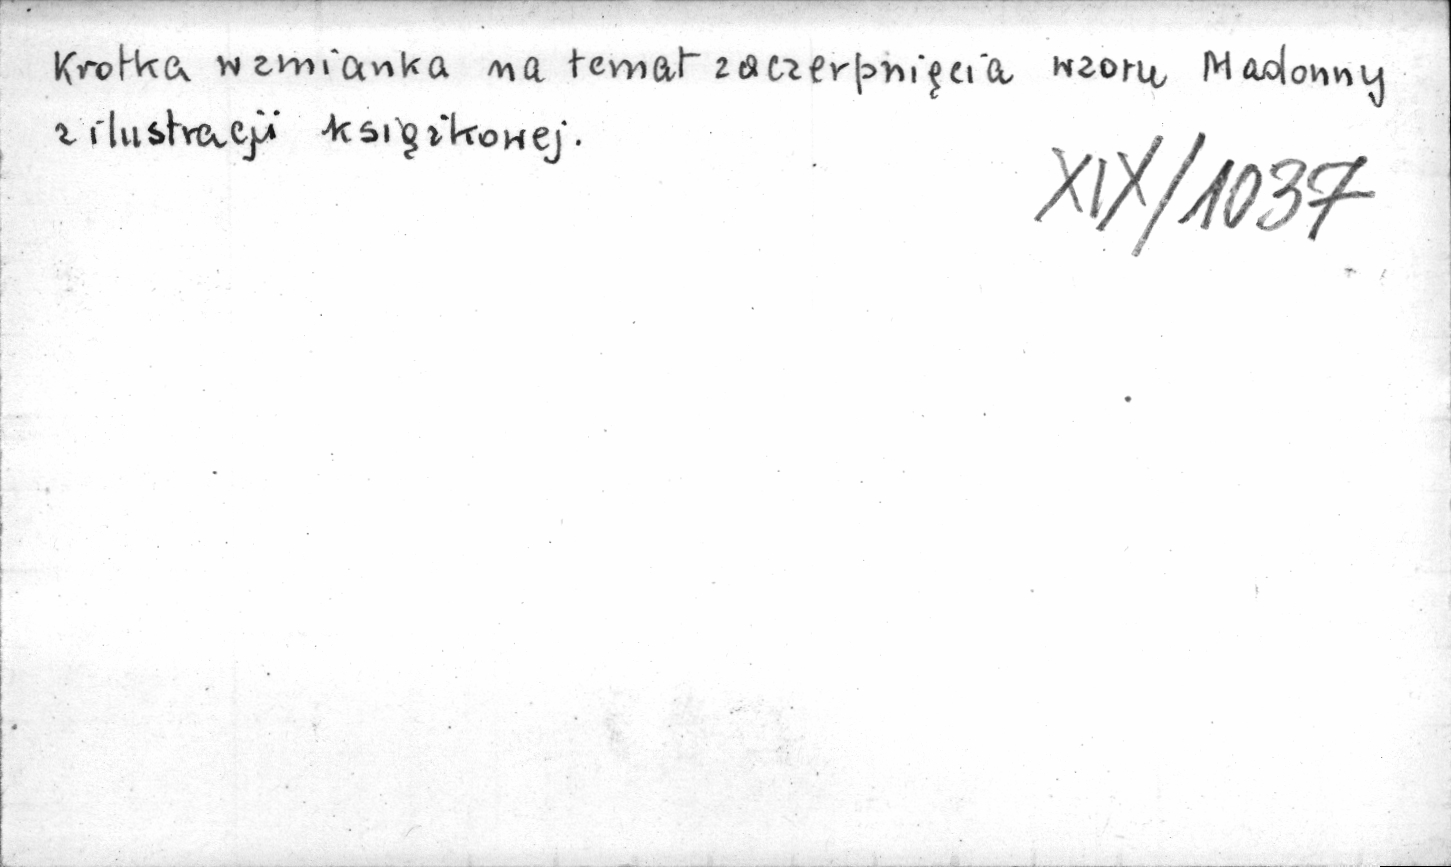 Krotka wzmianka na temat zaczerpnięcia wzoru Madonny
z ilustracji książkowej.
XIX/1037